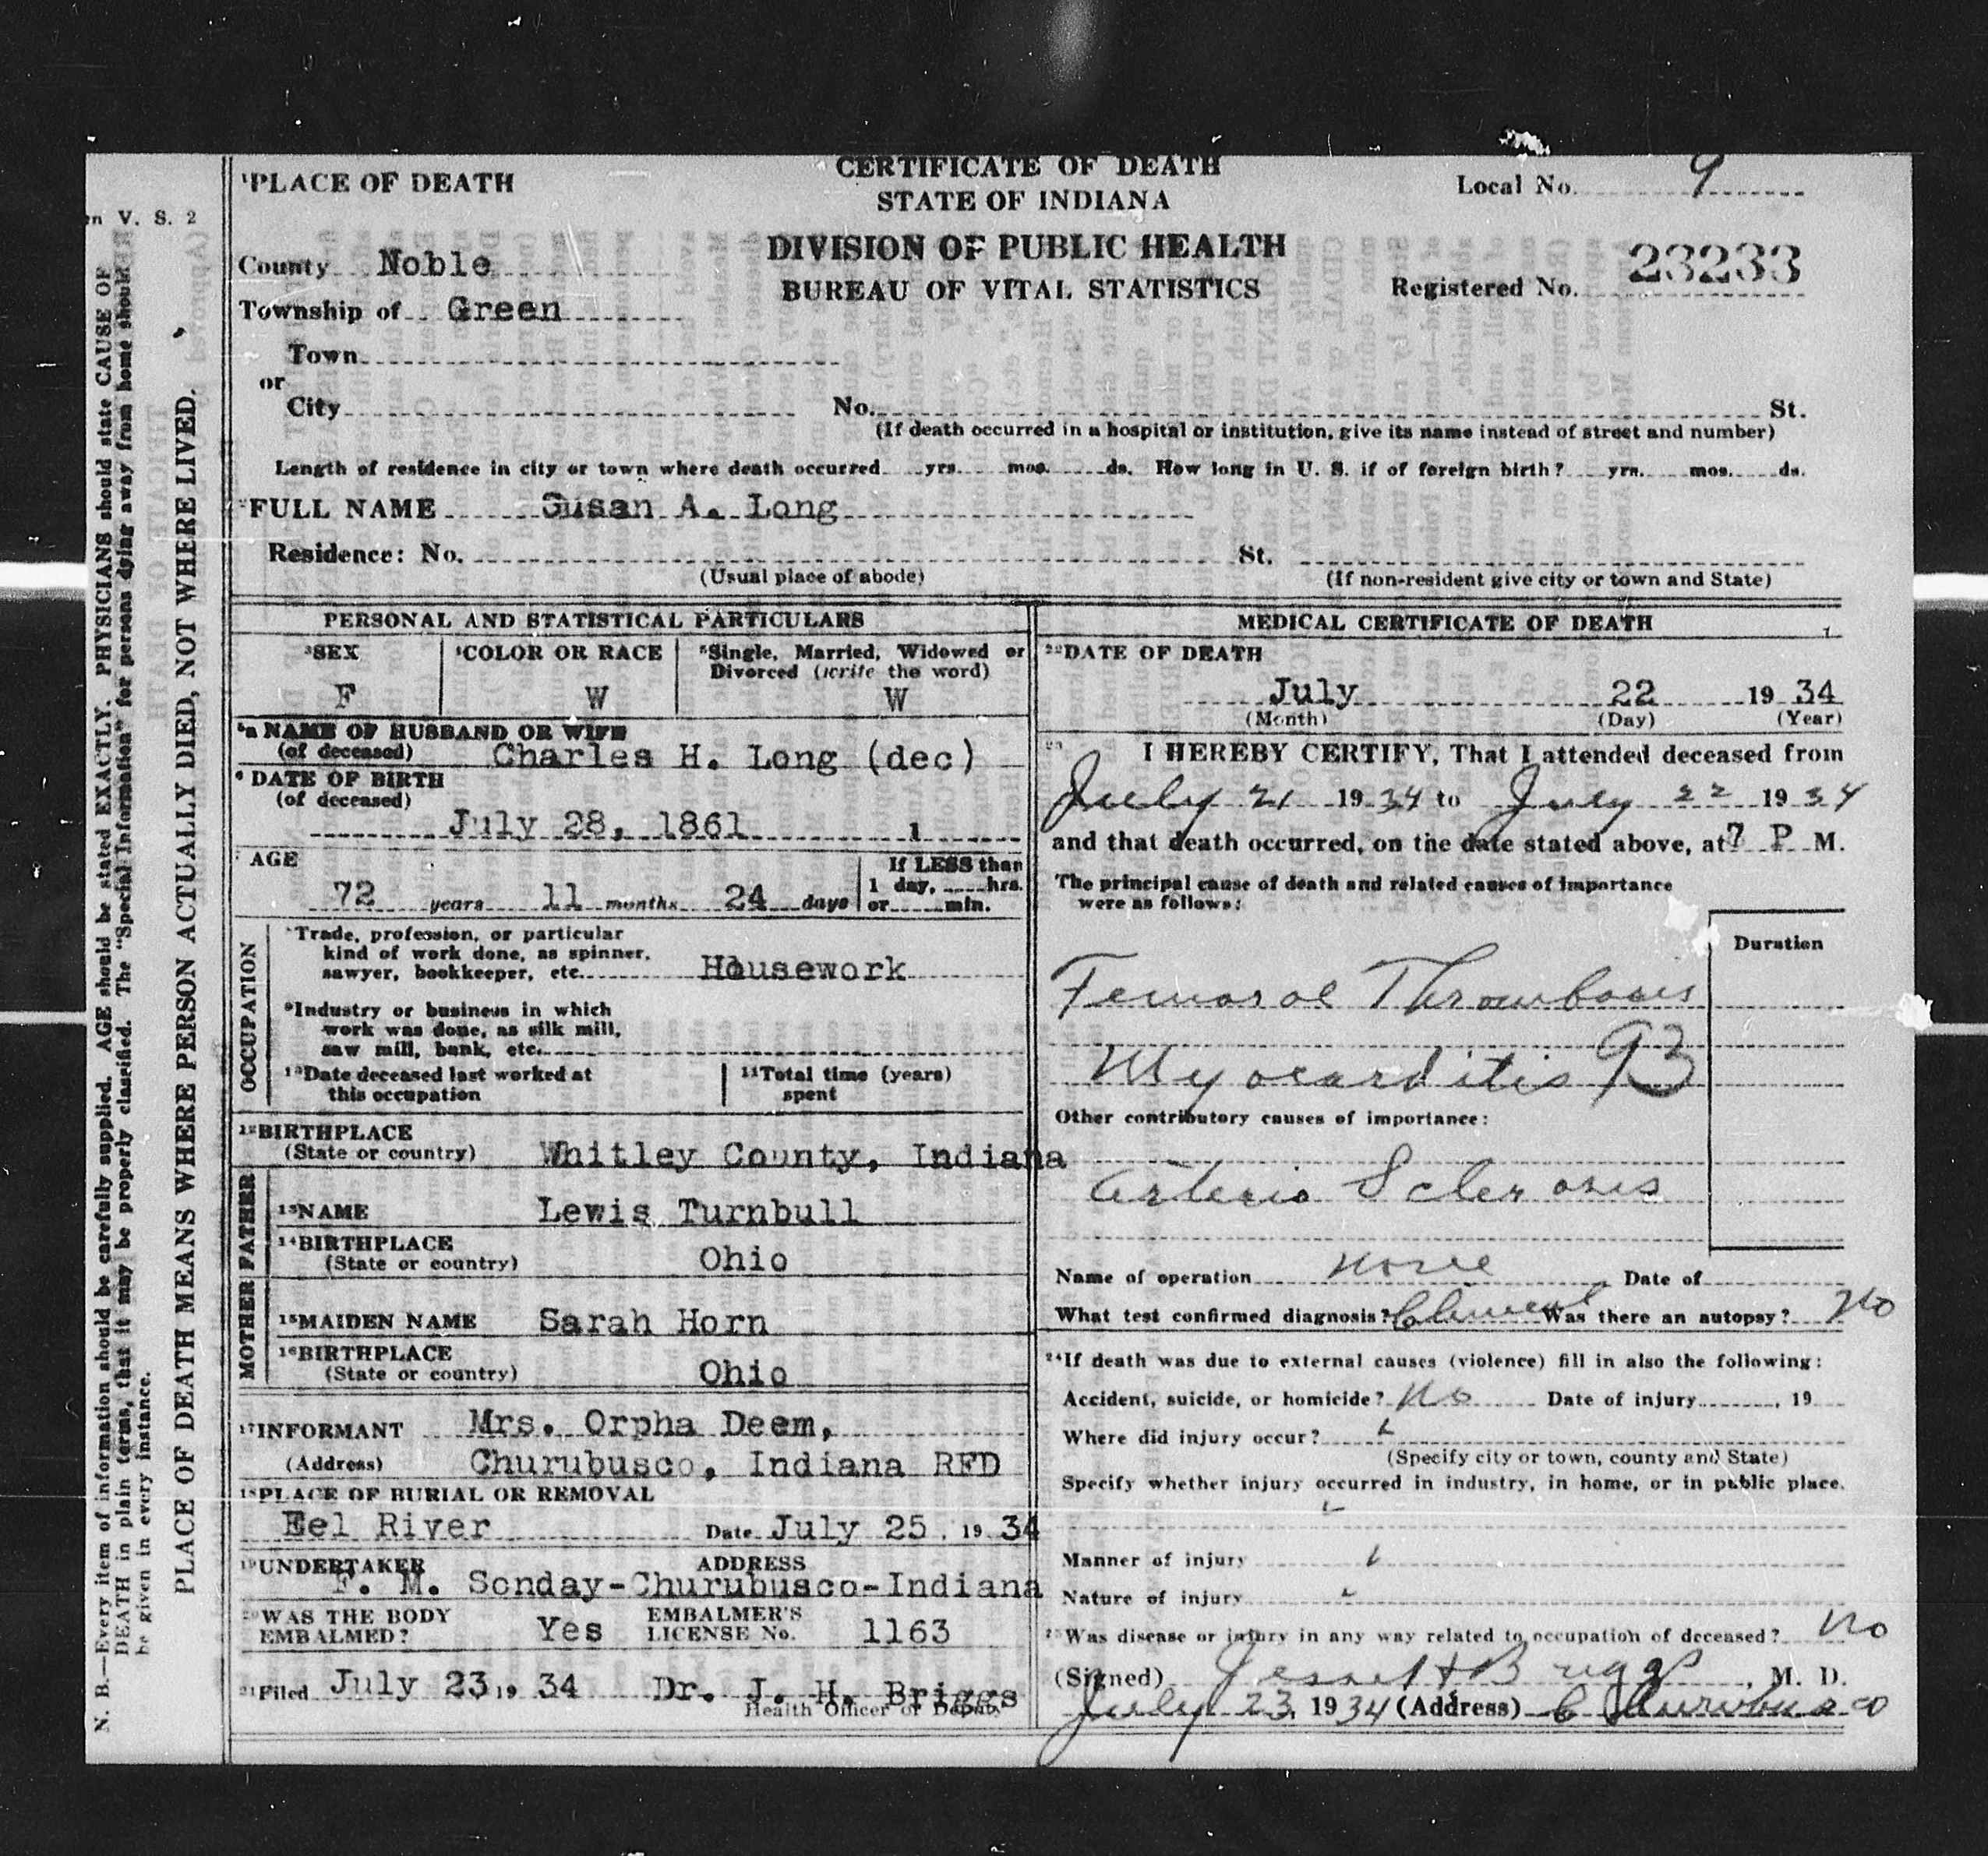 CERTIFICATE OF DEATH
STATE OF INDIANA
DIVISION OF PUBLIC HEALTH
BUREAU OF VITAL STATISTICS
Local No. 9
Registered No. 23233
V. S. 2
N. B.—Every item of information should be carefully supplied. AGE should be stated EXACTLY. PHYSICIANS should state CAUSE OF
DEATH in plain terms, that it may be properly classified. The "Special Information" for persons dying away from home should
be given in every instance.
PLACE OF DEATH MEANS WHERE PERSON ACTUALLY DIED, NOT WHERE LIVED.
1PLACE OF DEATH
County Noble
Township of Green
Town
or
City No. St.
(If death occurred in a hospital or institution, give its name instead of street and number)
Length of residence in city or town where death occurred yrs. mos. ds. How long in U. S. if of foreign birth? yrs. mos. ds.
2FULL NAME Susan A. Long
Residence: No. St.
(Usual place of abode) (If non-resident give city or town and State)
PERSONAL AND STATISTICAL PARTICULARS
3SEX 4COLOR OR RACE 5Single, Married, Widowed or
Divorced (write the word)
F W W
5a NAME OF HUSBAND OR WIFE
(of deceased) Charles H. Long (dec)
6 DATE OF BIRTH
(of deceased)
July 28, 1861 1
7 AGE If LESS than
72 years 11 months 24 days 1 day, hrs.
or min.
OCCUPATION
8Trade, profession, or particular
kind of work done, as spinner,
sawyer, bookkeeper, etc. Housework
9Industry or business in which
work was done, as silk mill,
saw mill, bank, etc.
10Date deceased last worked at 11Total time (years)
this occupation spent
12BIRTHPLACE
(State or country) Whitley County, Indiana
FATHER
13NAME Lewis Turnbull
14BIRTHPLACE
(State or country) Ohio
MOTHER
15MAIDEN NAME Sarah Horn
16BIRTHPLACE
(State or country) Ohio
17INFORMANT Mrs. Orpha Deem,
(Address) Churubusco, Indiana RFD
18PLACE OF BURIAL OR REMOVAL
Eel River Date July 25, 19 34
19UNDERTAKER ADDRESS
F. M. Sonday-Churubusco-Indiana
20WAS THE BODY EMBALMER'S
EMBALMED? Yes LICENSE No. 1163
21Filed July 23, 19 34 Dr. J. H. Briggs
Health Officer or Deputy
MEDICAL CERTIFICATE OF DEATH
22DATE OF DEATH
July 22 19 34
(Month) (Day) (Year)
23 I HEREBY CERTIFY, That I attended deceased from
July 21 19 34 to July 22 19 34
and that death occurred, on the date stated above, at 7 P. M.
The principal cause of death and related causes of importance
were as follows:
Duration
Femoral Thrombosis
Myocarditis 93
Other contributory causes of importance:
Arterio Sclerosis
Name of operation none Date of
What test confirmed diagnosis? Clinical Was there an autopsy? no
24If death was due to external causes (violence) fill in also the following:
Accident, suicide, or homicide? no Date of injury , 19
Where did injury occur?
(Specify city or town, county and State)
Specify whether injury occurred in industry, in home, or in public place.
Manner of injury
Nature of injury
25Was disease or injury in any way related to occupation of deceased? no
(Signed) Jesse H Briggs, M. D.
July 23, 19 34 (Address) Churubusco